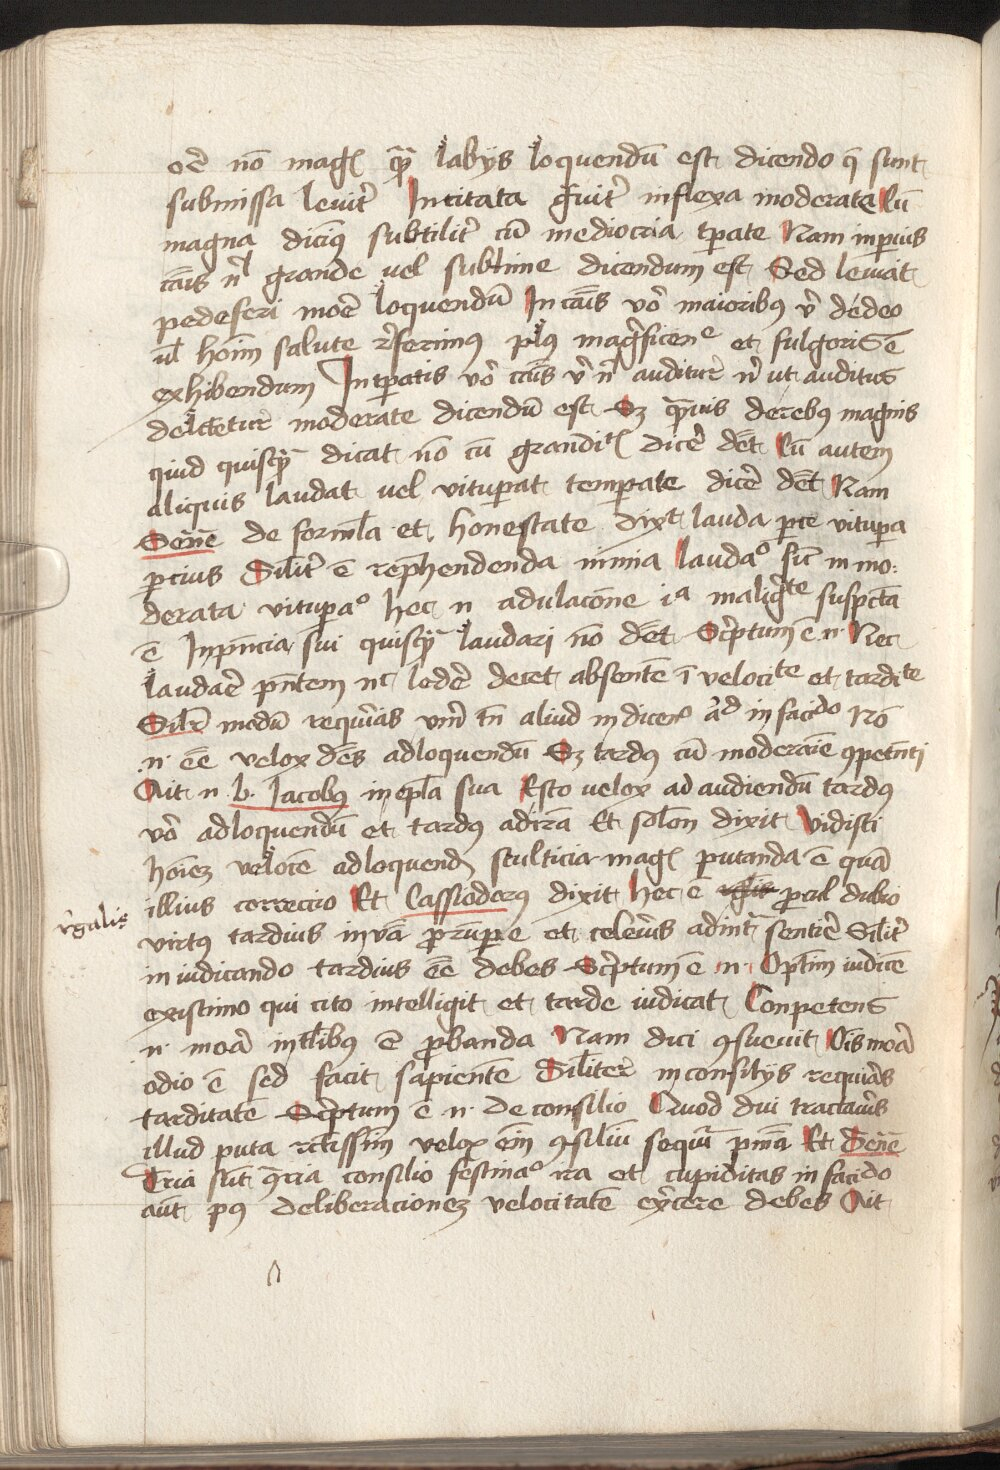 orē nō magꝭ qͣ̄ labijs loquendū est dicendo q̄ sunt
submissa leuit̉ Intitata g̃uit̉ inflexa moderate Cū
magna dicim⁹ subtilit̉ cū mediocria tꝑate Nam in ꝑuis
cāis nl̄ grande uel sublime dicendum est Sed leuiat
pedestri moē loquendū In cāis vō maioribꝰ vͥ de deo
ul̄ hoīm salute r̄ferimꝰ plꝰ magͥficencͤ et fulgoris ē
exhibendum In tꝑatis vō cāis vͥ nͨ auditur̉ nͥ ut auditus
delctetur̉ moderate dicendū est Sꝫ qͣuis de rebꝰ magnis
quid quisqͣ̄ dicat nō cū grandit̉ dicē dēt Cū autem
aliquis laudat uel vituꝑat temꝑate dicē dēt Nam
Sene̅ de forml̄a et honestate dixͭ lauda ꝑce vituꝑa
ꝑcius Silit̉ ē rep̄hendenda nimia laudaͦ sic̄ in mo:
derata vituꝑaͦ hec n̄ adulacōne iͣ maligͭᵉ suspc̄ta
ē In pn̄cia sui quisqͣ̄ laudari nō dēt Scͥptum ē .n. Nec
laudarē pn̄tem nc̄ ledē decet absentē ī velociᵗᵉ et tardiᵗᵉ
Silr̄ modū requiͬas vnū tn̄ aliud in dicenͦ aͥᵈ in faciᵈᵒ Nō
.n. eē velox dēs ad loquendū Sꝫ tardꝰ cū moderāie ꝯpetenti
Ait .n. b. Iacobꝰ in epl̄a sua Esto uelox ad audiendū tardꝰ
vō ad loquendū et tardꝰ ad irā Et solon dixit Vidisti
hoīeꝫ velocē ad loquendꝫ stulticia magꝭ putanda ē quā
illius correctio Et Cassiodorꝰ dixit hec ē ꝓcul dubio
r̄galis
virtꝰ tardius in vā ꝓrūpe et celeriꝰ ad int̄ sentiē Silit̉
in iudicando tardius eē debes Scͥptum ē .n. Optīm iudicē
existimo qui cito intelligit et tarde iudicat Conpetens
.n. moā in tl̄ibꝰ ē ꝓbanda Nam dici ꝯsueuit Oīs moā
odio ē sed facit sapientē Silit̉er in consilijs requiͬas
tarditatē Scͥptum ē .n. de consilio Quod diu tractaueris
illud puta rectissīm velox eīm ꝯsiliū sequit̄ pnīa Et Sene̅
Tria sūt ꝯͣria consilio festinaͦ ira et cupiditas in faciᵈᵒ
aūt pꝰ deliberacioneꝫ velocitatē ex̄cere debes Ait